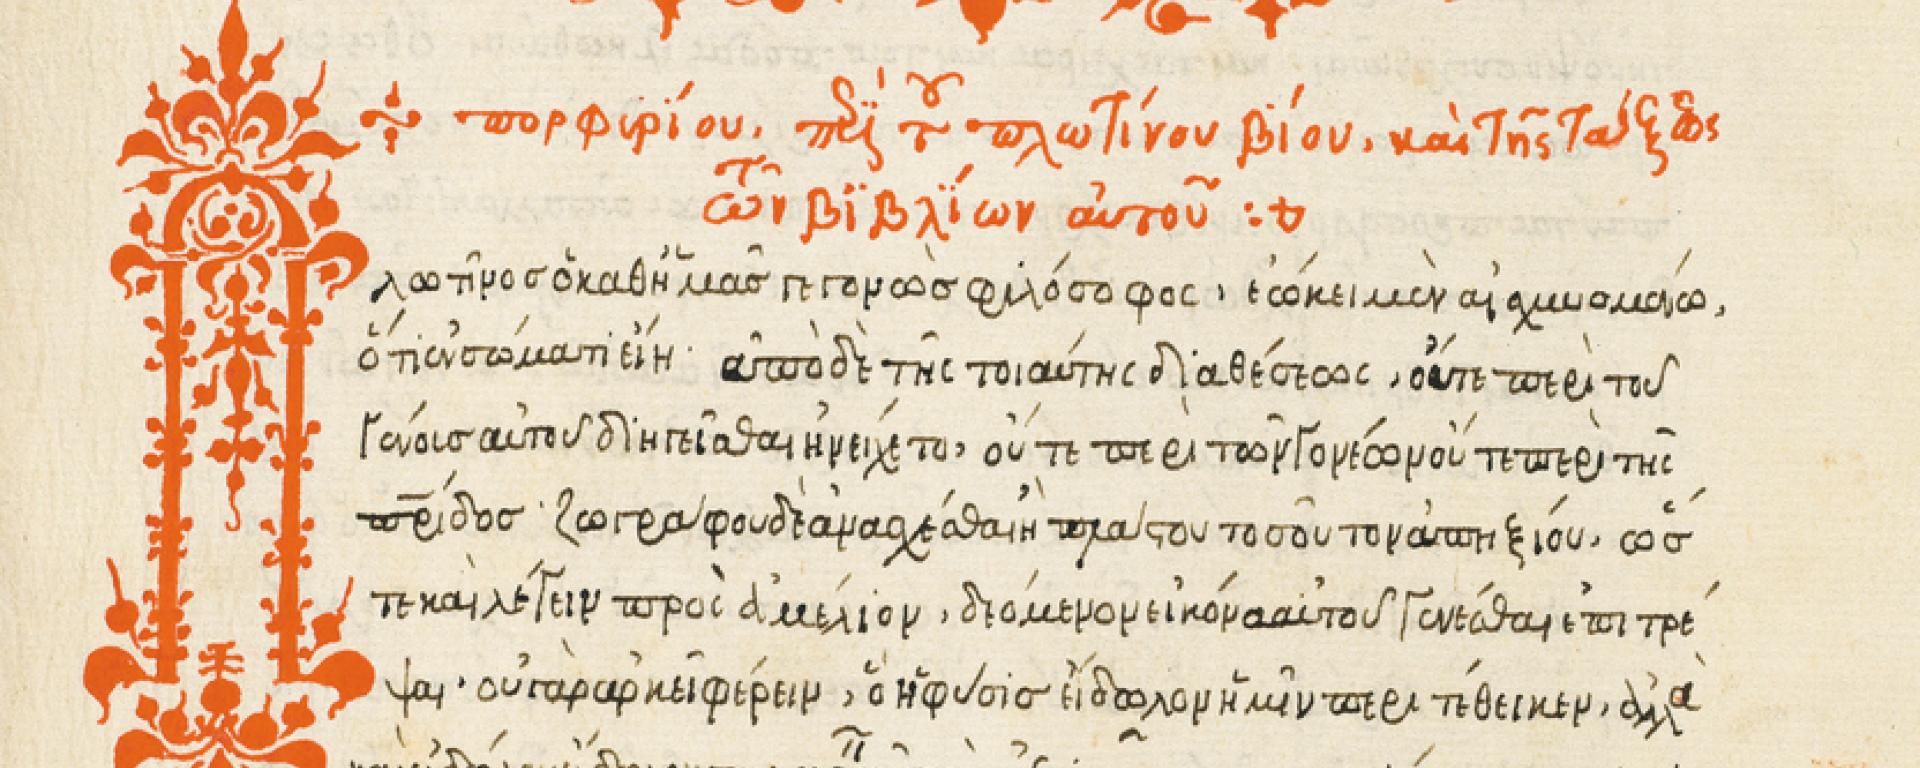 πορφιρίου. περὶ τοῦ πλωτίνου βίου. καὶ τῆς τάξεως
τῶν βιβλίων αὐτοῦ :
λωτῖνος ὁ καθ' ἡμᾶς γεγονὼς φιλόσοφος, ἐώκει μὲν αἰσχυνομένω,
ὅτι ἐν σώματι εἴη· ἀπὸ δὲ τῆς τοιαύτης διαθέσεως, οὔτε περὶ τοῦ
γένοις αὐτοῦ διηγεῖσθαι ἠνείχετο, οὔτε περὶ τῶν γονέων οὔτε περὶ τῆς
πρίδος· ζωγράφου δὲ ἀνασχέσθαι ἢ πλάστου τοσοῦτον ἀπηξίου. ὥς
τε καὶ λέγειν πρὸς ἀμέλιον, δεόμενον εἰκόνα αὐτοῦ γενέσθαι ἐπιτρέ
ψαι· οὐ γὰρ ἀρκεῖ φέρειν, ὃ ἡ φύσις εἴδωλον ἡμῖν περιτέθεικεν, ἀλλὰ